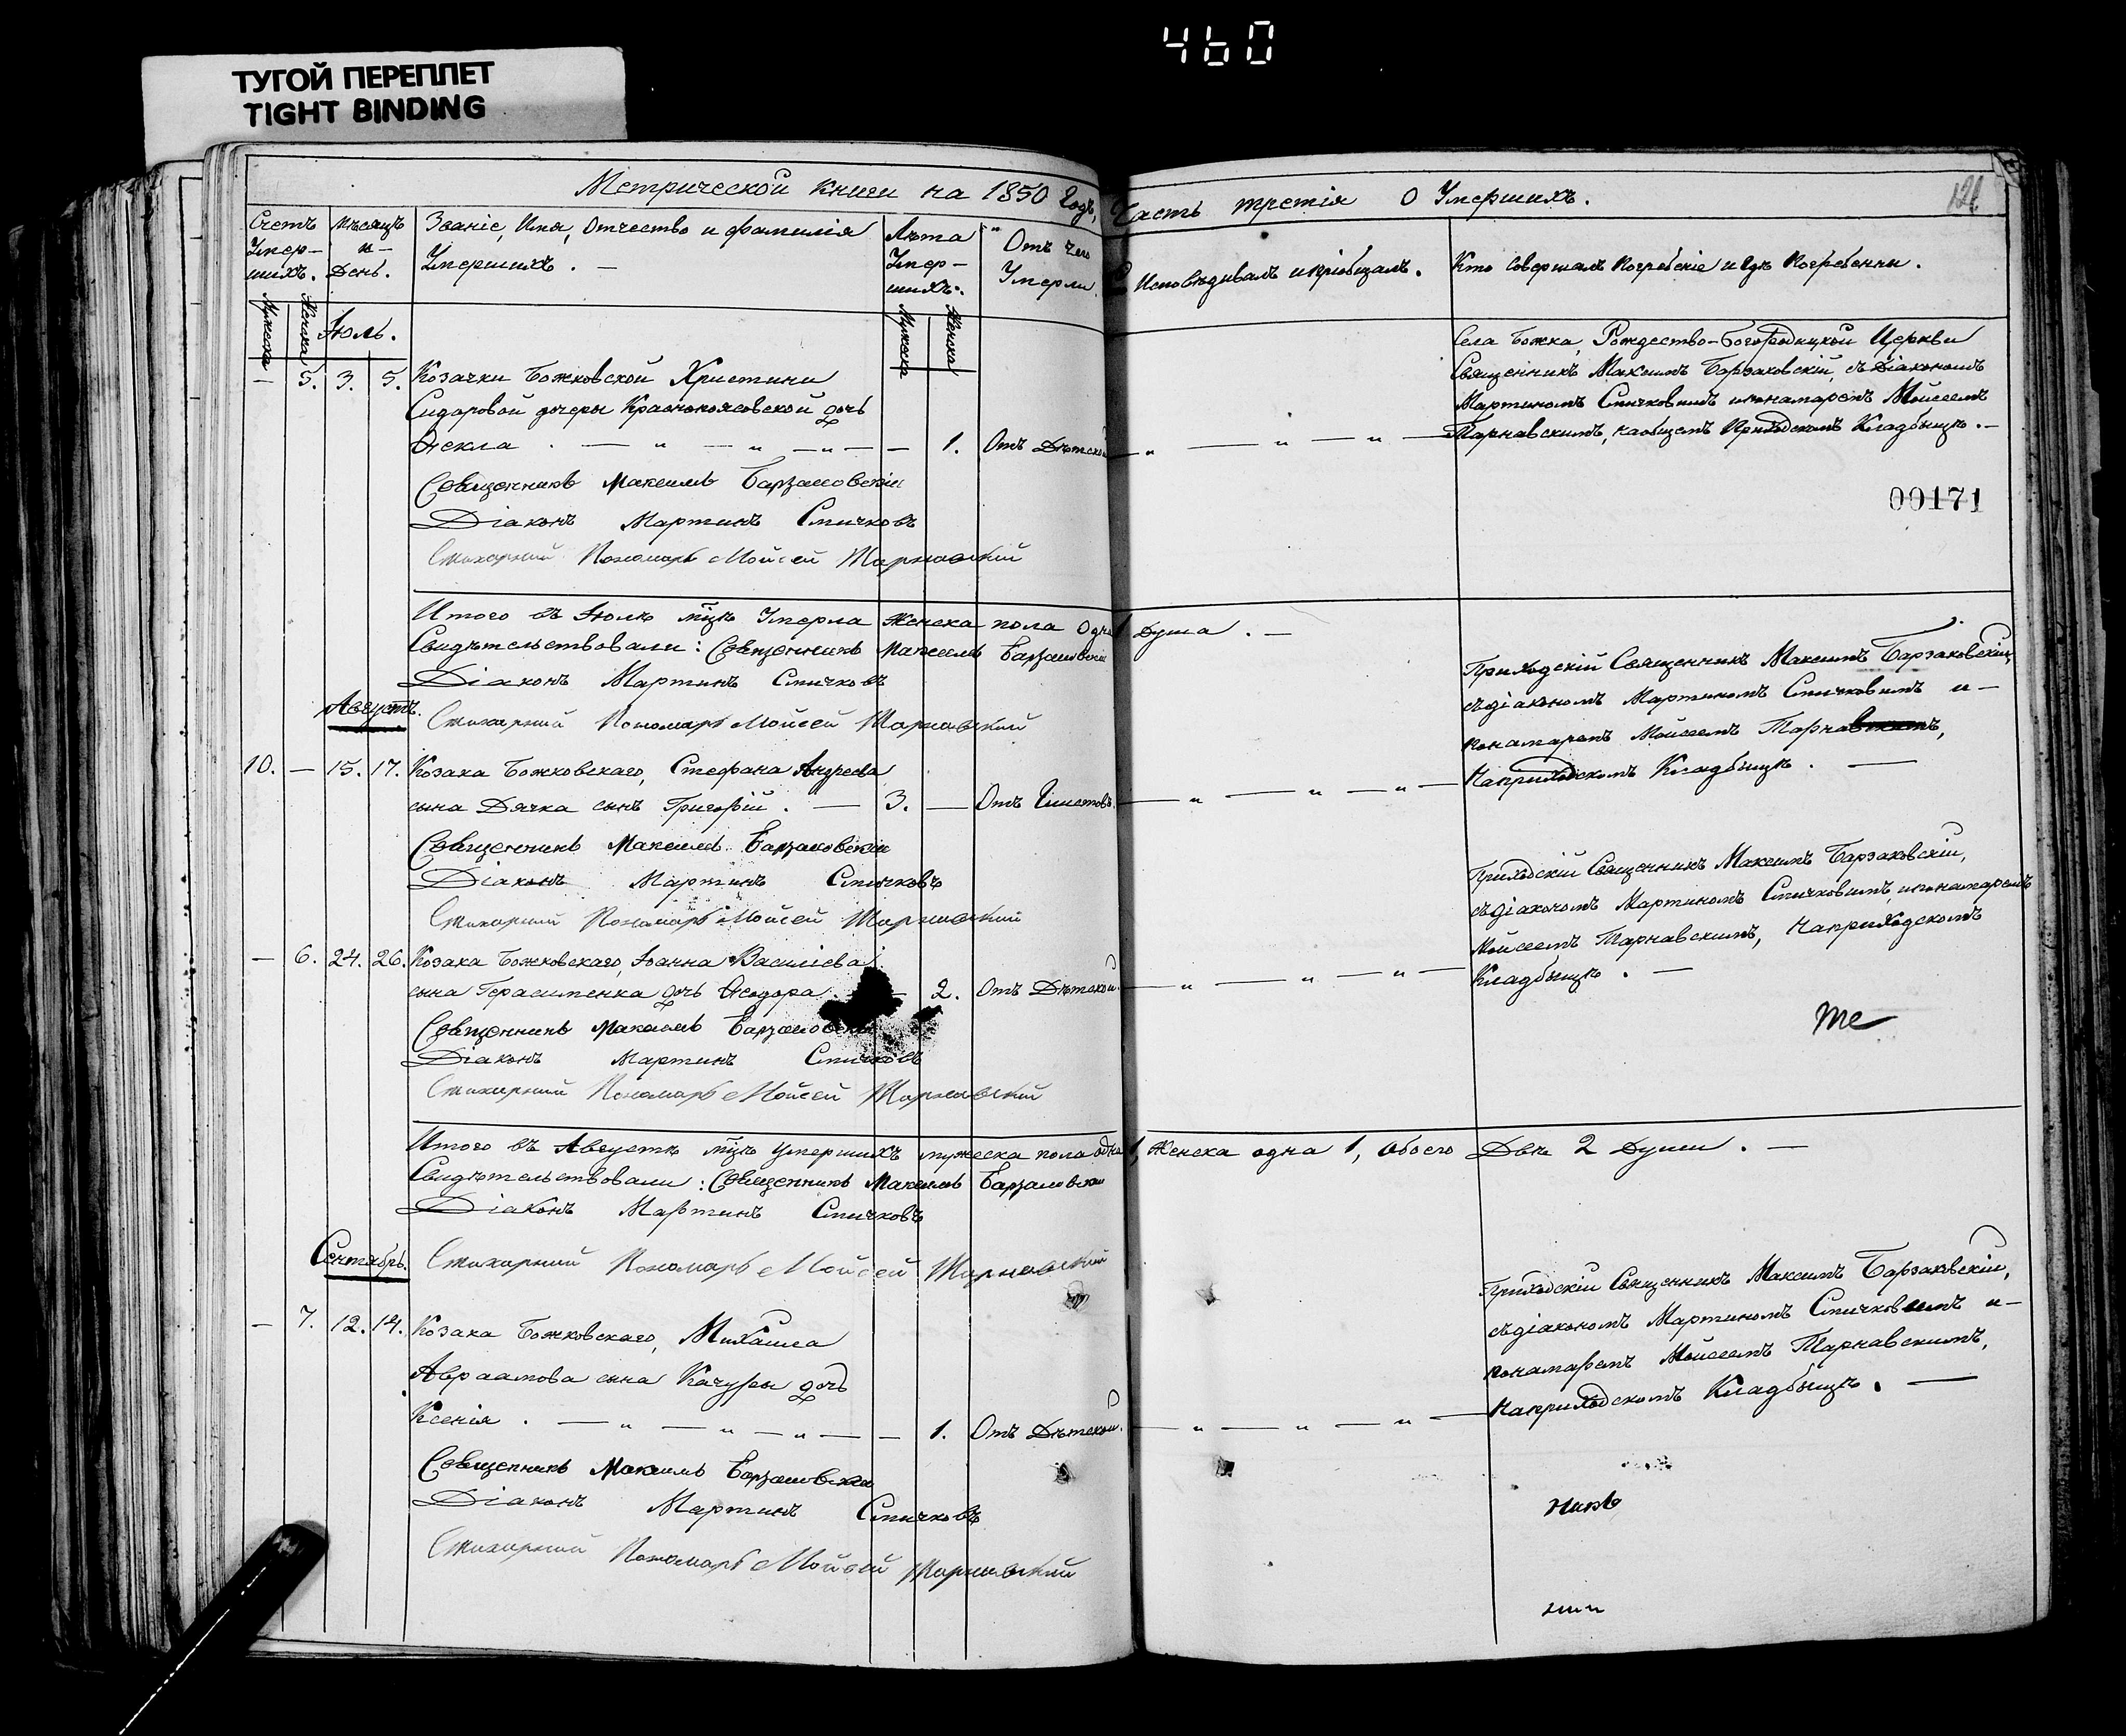 460
ТУГОЙ ПЕРЕПЛЕТ
TIGHT BINDING
Метрической книги на 1850 Годъ, Часть третія о Умершихъ.
121
Счетъ Умер- шихъ.
Мѣсяцъ и День.
Званіе, Имя, Отчество и фамилія Умершихъ. —
Лѣта Умер- шихъ.
Отъ чего Умерли.
Исповѣдивалъ и пріобщалъ.
Кто совершалъ погребеніе и где погребенны.
Мужеска Женска
Мужеска Женска
Іюль.
— 5. 3. 5. Козачки Божковской Христини
Сидаровой дочеры Краснокоясовской дочь
Ѳекла . — „ — „ — „ — — 1. Отъ Дѣтской — „ — „ — „ —
Села Божка, Рождество-Богородицкой Церкви
Священникъ Максимъ Барзаковскій, съ Діакономъ
Мартиномъ Спичковимъ и понамаремъ Мойсеемъ
Тарнавскимъ, на общемъ Приходскомъ Кладбыще. —
Священникъ Максимъ Барзаковскій
Діаконъ Мартинъ Спичковъ
Стихарний Пономарь Мойсей Тарнавский
00171
Итого въ Іюлѣ мцѣ Умерла женска пола одна 1 Душа. —
Свидѣтельствовали: Священникъ Максимъ Барзаковскій
Діаконъ Мартинъ Спичковъ
Стихарний Пономарь Мойсей Тарнавский
Августъ.
10. — 15. 17. Козака Божковскаго, Стефана Андреева
сына Дячка сынъ Григорій. — 3. — Отъ Глистовъ. — „ — „ — „ —
Приходскій Священникъ Максимъ Барзаковскій,
съ діакономъ Мартиномъ Спичковимъ и —
понамаремъ Мойсеемъ Тарнавскимъ,
На приходскомъ Кладбыще. —
Священникъ Максимъ Барзаковскій
Діаконъ Мартинъ Спичковъ
Стихарний Пономарь Мойсей Тарнавский
— 6. 24. 26. Козака Божковскаго, Іоанна Василіева
сына Герасименка дочь Ѳеодора — 2. Отъ Дѣтской. — „ — „ — „ —
Приходскій Священникъ Максимъ Барзаковскій,
съ діакономъ Мартиномъ Спичковимъ, и понамаремъ
Мойсеемъ Тарнавскимъ, На приходскомъ
Кладбыще. —
Священникъ Максимъ Барзаковскій
Діаконъ Мартинъ Спичковъ
Стихарний Пономарь Мойсей Тарнавский
Итого въ Августѣ мцѣ умершихъ мужеска пола одна 1, женска одна 1, обоего Двѣ 2 Души. —
Свидѣтельствовали: Священникъ Максимъ Барзаковскій
Діаконъ Мартинъ Спичковъ
Стихарний Пономарь Мойсей Тарнавский
Сентябрь.
— 7. 12. 14. Козака Божковскаго, Михаила
Авраамова сына Качуры дочь
Ксенія . — „ — „ — „ — — 1. Отъ Дѣтской. — „ — „ — „ —
Приходскій Священникъ Максимъ Барзаковскій,
съ діакономъ Мартиномъ Спичковимъ и —
понамаремъ Мойсеемъ Тарнавскимъ,
На приходскомъ Кладбыще. —
Священникъ Максимъ Барзаковскій
Діаконъ Мартинъ Спичковъ
Стихарний Пономарь Мойсей Тарнавский